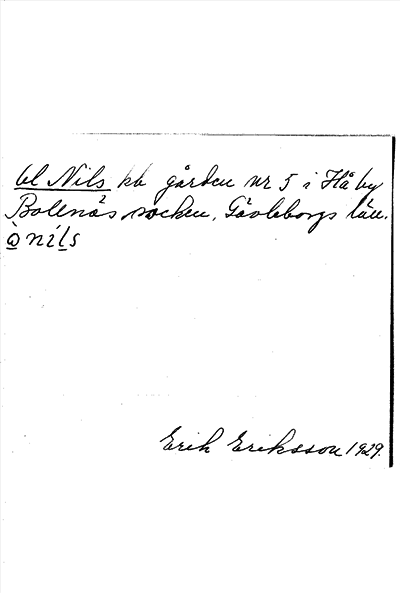 Ol Nils kb gården nr 5 i Hå by
Bollnäs socken, Gävleborgs län.
ò nils
Erik Eriksson 1929.